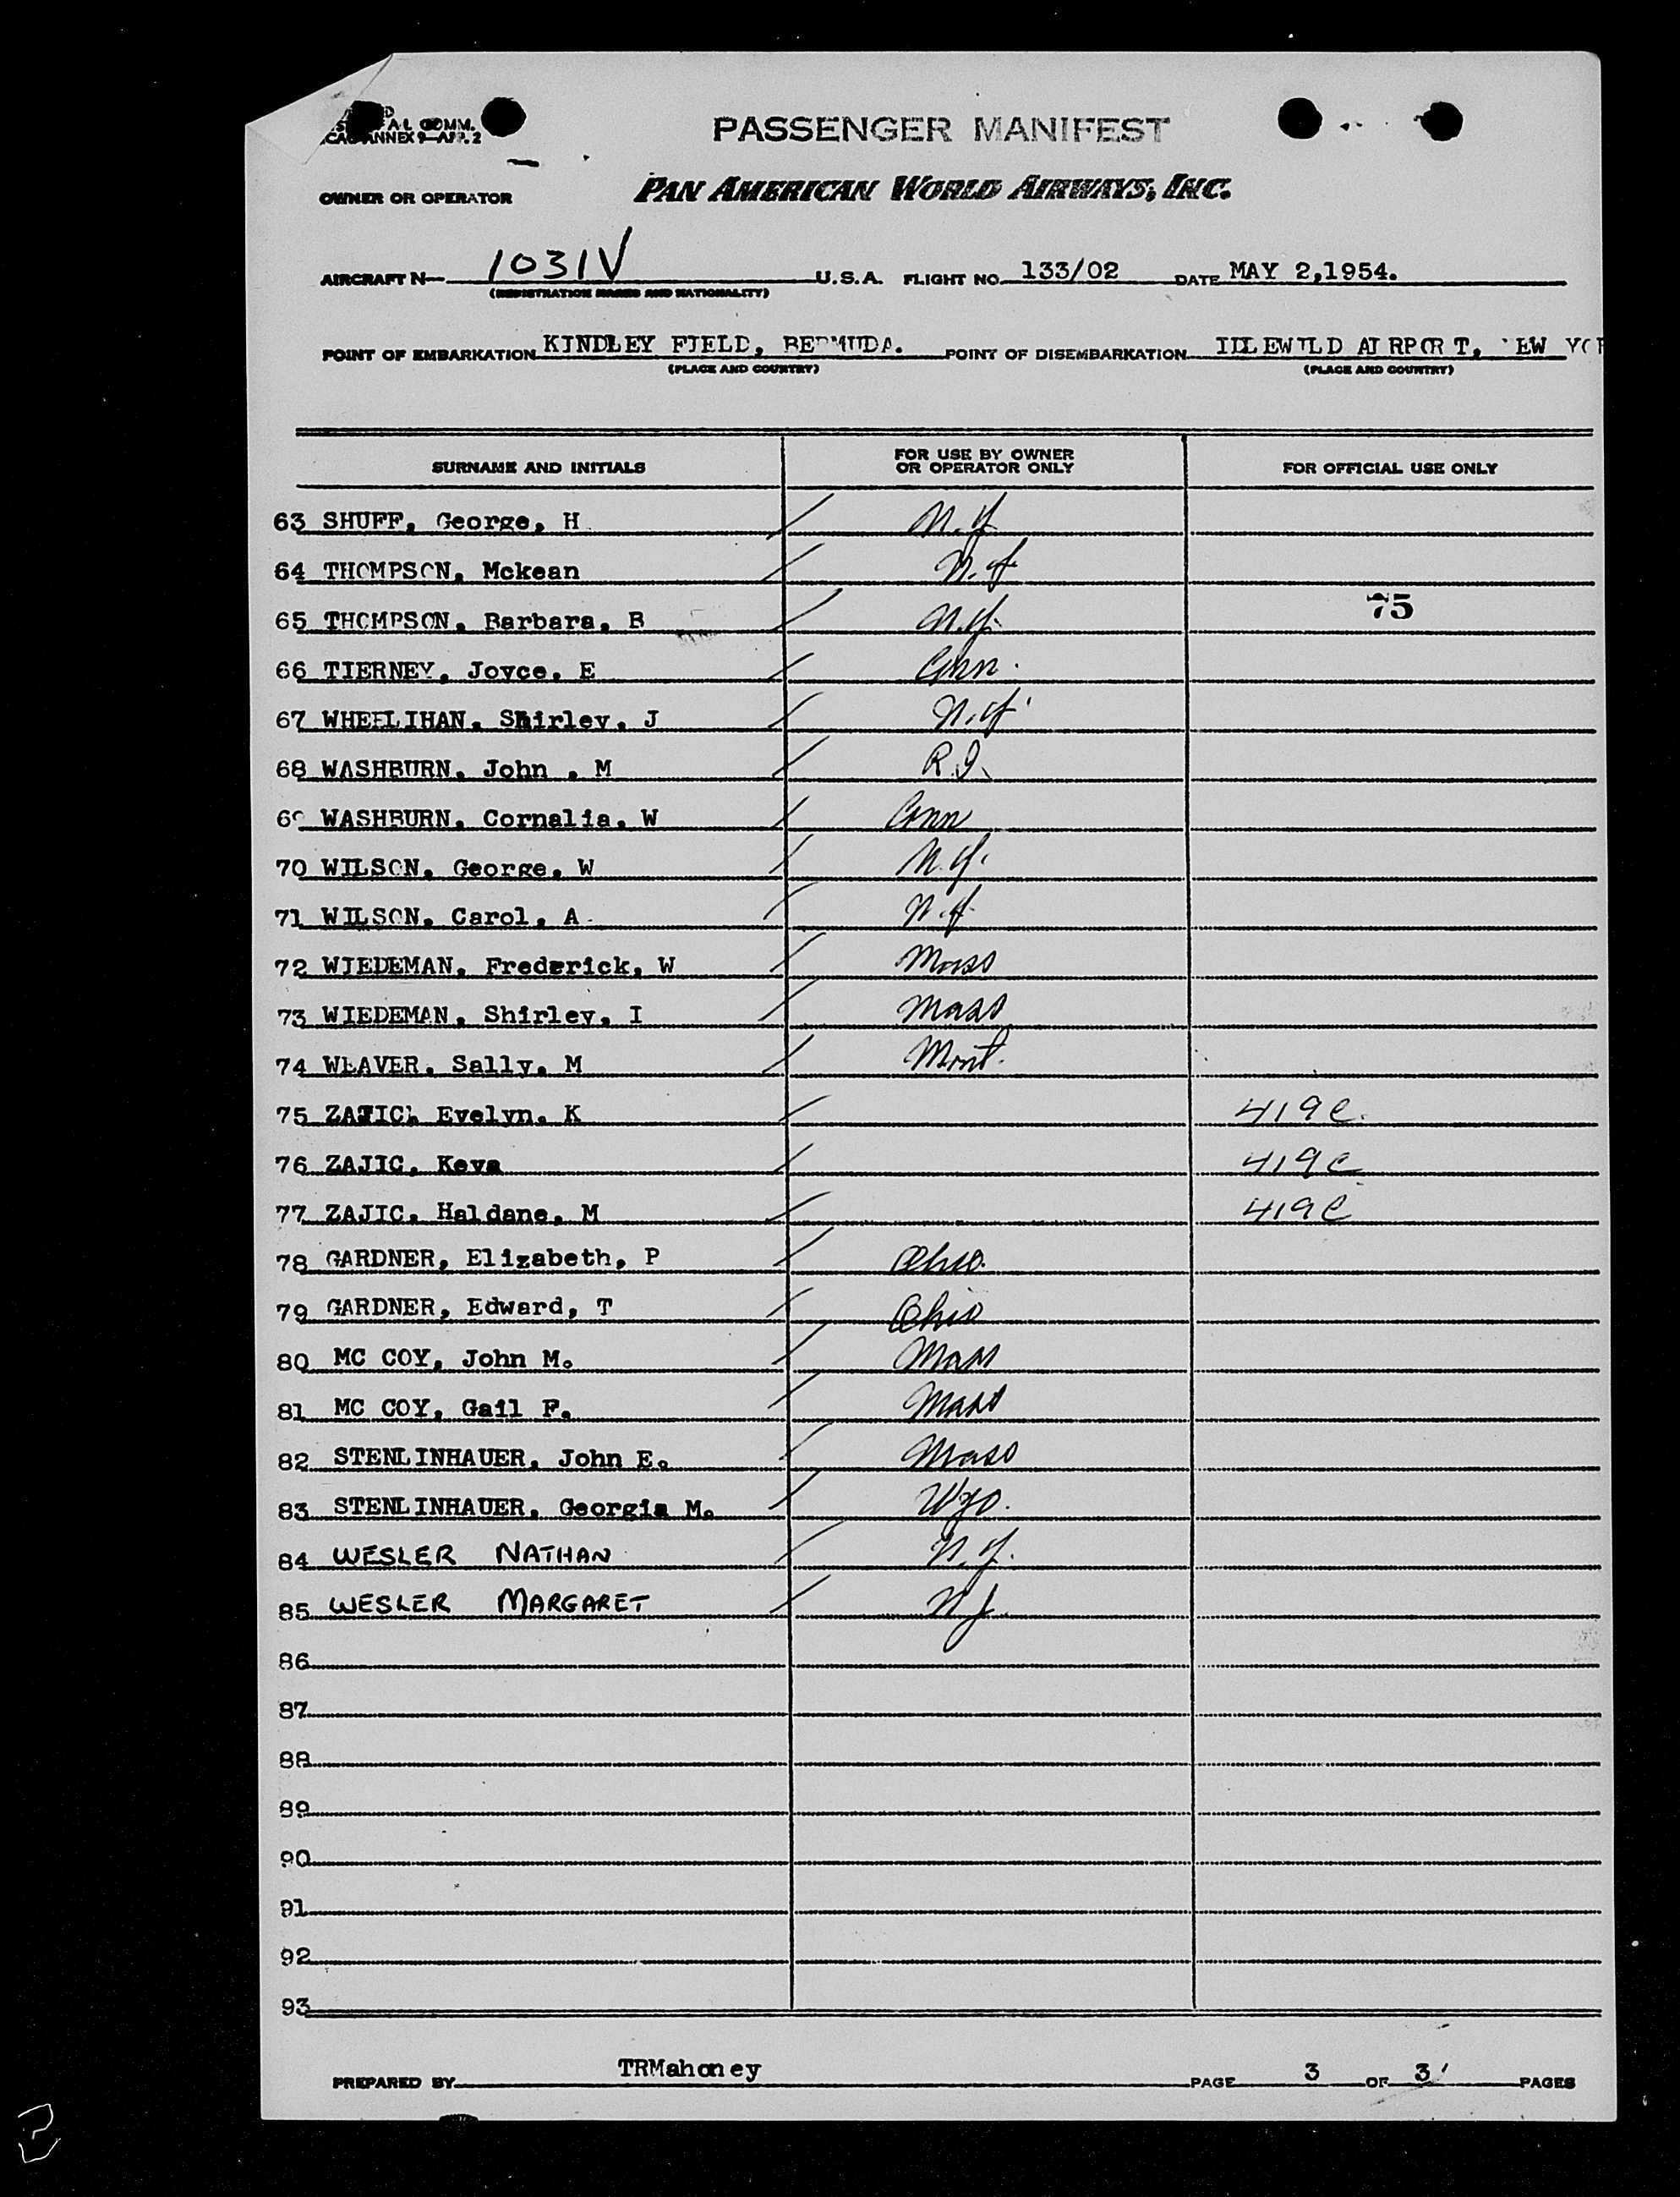 A-L COMM.
ANNEX 9—APP. 2
PASSENGER MANIFEST
OWNER OR OPERATOR PAN AMERICAN WORLD AIRWAYS, INC.
AIRCRAFT N— 1031V U.S.A. FLIGHT NO. 133/02 DATE MAY 2,1954.
(REGISTRATION MARKS AND NATIONALITY)
POINT OF EMBARKATION KINDLEY FIELD, BERMUDA. POINT OF DISEMBARKATION IDLEWILD AIRPORT, NEW YOR
(PLACE AND COUNTRY) (PLACE AND COUNTRY)
SURNAME AND INITIALS FOR USE BY OWNER OR OPERATOR ONLY FOR OFFICIAL USE ONLY
63 SHUFF, George, H N.Y
64 THOMPSON, Mckean N.Y.
65 THOMPSON, Barbara, B N.Y. 75
66 TIERNEY, Joyce, E Conn.
67 WHEELIHAN, Shirley, J N.Y.
68 WASHBURN, John , M R.I.
69 WASHBURN, Cornalia, W Conn
70 WILSON, George, W N.Y.
71 WILSON, Carol, A N.Y.
72 WIEDEMAN, Frederick, W Mass
73 WIEDEMAN, Shirley, I Mass
74 WEAVER, Sally, M Mont.
75 ZAJIC, Evelyn, K 419C.
76 ZAJIC, Keva 419C
77 ZAJIC, Haldane, M 419C
78 GARDNER, Elizabeth, P Ohio.
79 GARDNER, Edward, T Ohio
80 MC COY, John M. Mass
81 MC COY, Gail F. Mass
82 STENLINHAUER, John E. Mass
83 STENLINHAUER, Georgia M. Wyo.
84 WESLER NATHAN N.Y.
85 WESLER MARGARET NJ.
86
87
88
89
90
91
92
93
PREPARED BY TRMahoney PAGE 3 OF 3 PAGES